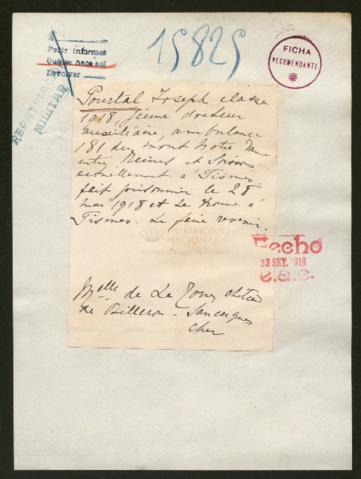 á
Pedir informes
Que se hace así
Devolver
15825
FICHA
RECOMENDANTE
REPATRIA
MILITAR
Pourtal Joseph classe
1918 jeune docteur
auxiliaire, ambulance
181 du mont Notre Dame
entre Reims et Soissons
actuellement à Fismes
fait prisonnier le 28
mai 1918 et se trouve à
Fismes. Le faire revenir.
PATRIMONIO
NACIONAL
Archivo General de Palacio
Hecho
23 SET. 1918
C.a.C.
Melle de La
de Billeron - Sancergues
Cher